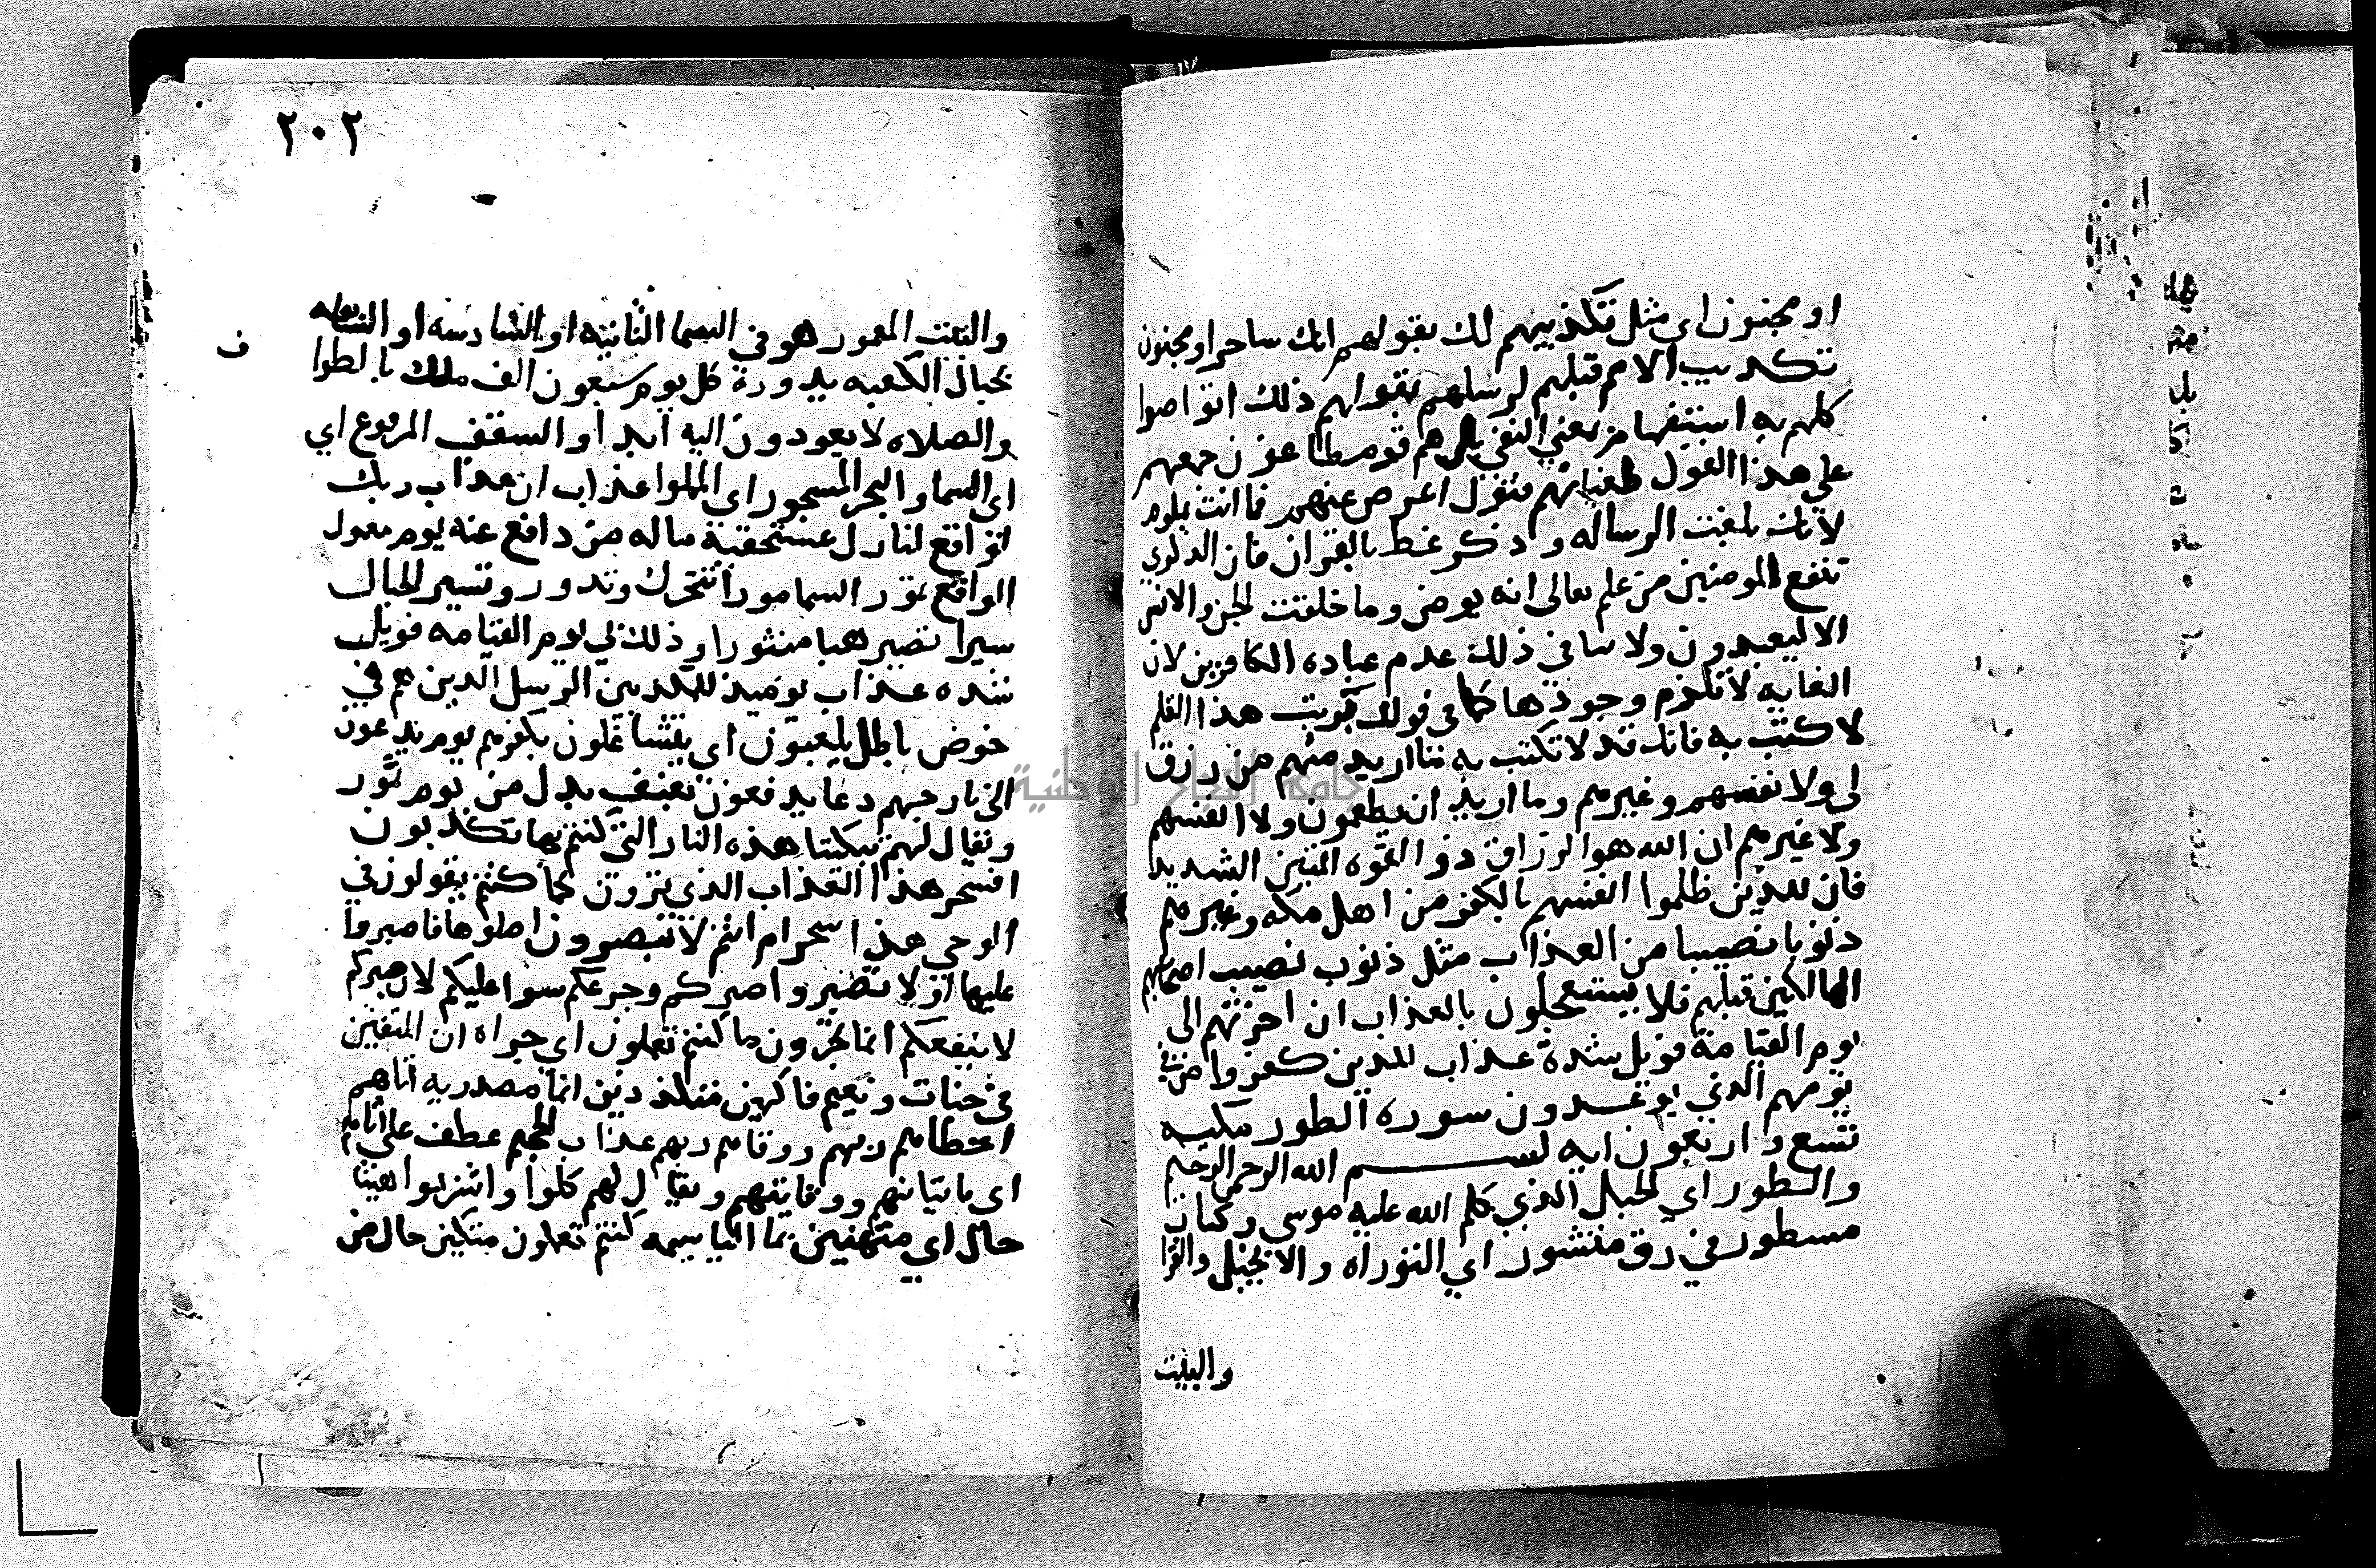 او مجنون اي مثل تكذيبهم لك بقولهم انك ساحر او مجنون
تكديب الامم قبلهم لرسلهم بقولهم ذلك اتواصوا
كلهم به استفهام بمعني النفي بل هم قوم طاغون جمعهم
علي هذا القول طغيانهم فتول اعرض عنهم فما انت بملوم
لانك بلغت الرساله وذكر عظ بالقران فان الذكري
تنفع المومنين من علم تعالى انه يومن وما خلقت الجن والانس
الا ليعبدون ولا ينافي ذلك عدم عباده الكافرين لان
الغايه لا يلزم وجودها كما في قولك بريت هذا القلم
لاكتب به فانك قد لا تكتب به ما اريد منهم من رزق
لى ولا نفسهم وغيرهم وما اريد ان يطعمون ولا انفسهم
ولا غيرهم ان الله هو الرزاق ذو القوه المتين الشديد
فان للذين ظلموا انفسهم بالكفر من اهل مكه وغيرهم
ذنوبا نصيبا من العذاب مثل ذنوب نصيب اصحابهم
الهالكين قبلهم فلا يستعجلون بالعذاب ان اخرتهم الى
يوم القيامة فويل شدة عذاب للذين كفروا من
يومهم الذي يوعدون سوره الطور مكيه
تسع واربعون ايه بسم الله الرحمن الرحيم
والطور اي الجبل الذي كلم الله عليه موسى وكتاب
مسطور في رق منشور اي التوراه والانجيل والقرا
والبيت
٢٠٢
والبيت المعمور هو في السما الثانيه او السادسه او السابعه
بحيال الكعبه يدورة كل يوم سبعون الف ملك بالطوا
والصلاه لا يعودون اليه ابدا والسقف المرفوع اي
اى السما والبحر المسجور اى المملوا عذاب ان عذاب ربك
لواقع لنازل بمستحقيه ماله من دافع عنه يوم معمول
الواقع تمور السما مورا تتحرك وتدور وتسير الجبال
سيرا تصير هبا منثورا وذلك في يوم القيامه فويل
شده عذاب يوميذ للمكذبين الرسل الذين هم في
خوض باطل يلعبون اي يتشاغلون بكفرهم يوم يدعون
الى نار جهنم دعا يدفعون بعنف بدل من يوم تمور
ويقال لهم تبكيتا هذه النار التي كنتم بها تكذبون
افسحر هذا العذاب الذي ترون كما كنتم تقولون في
الوحي هذا سحر ام انتم لا تبصرون اصلوها فاصبروا
عليها او لا تصبروا صبركم وجزعكم سوا عليكم لان صبركم
لا ينفعكم انما تجزون ما كنتم تعملون اي جزاه ان المتقين
في جنات ونعيم فاكهين متلذذين بما مصدريه اتاهم
اعطاهم ربهم ووقاهم ربهم عذاب الجحيم عطف على اتاهم
اى باتيانهم ووقايتهم ويقال لهم كلوا واشربوا هنيئا
حال اي متهنين بما البا سببيه كنتم تعملون متكئين حال من
ف